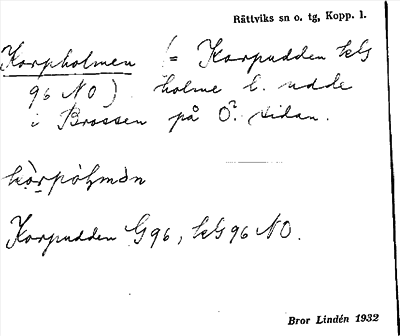 Rättviks sn o. tg, Kopp. l.
Korpholmen (= Korpudden kbl
96 NO). holme l. udde
i Brossen på Ö. sidan.
Korpudden G96, kbl 96 NO.
Bror Lindén 1932